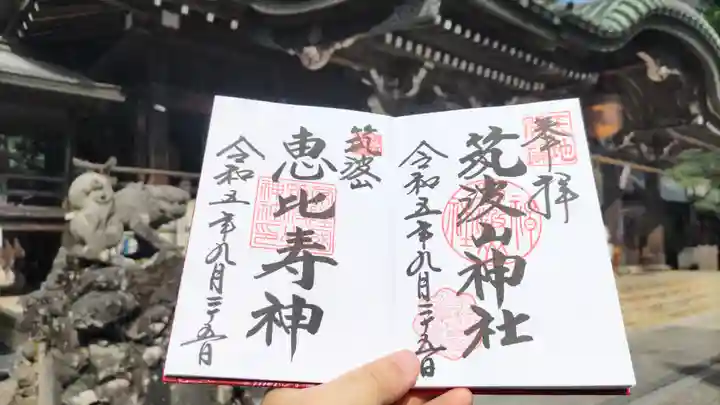 奉拝
筑波山神社
令和五年九月二十五日
筑波山
恵比寿神
令和五年九月二十五日